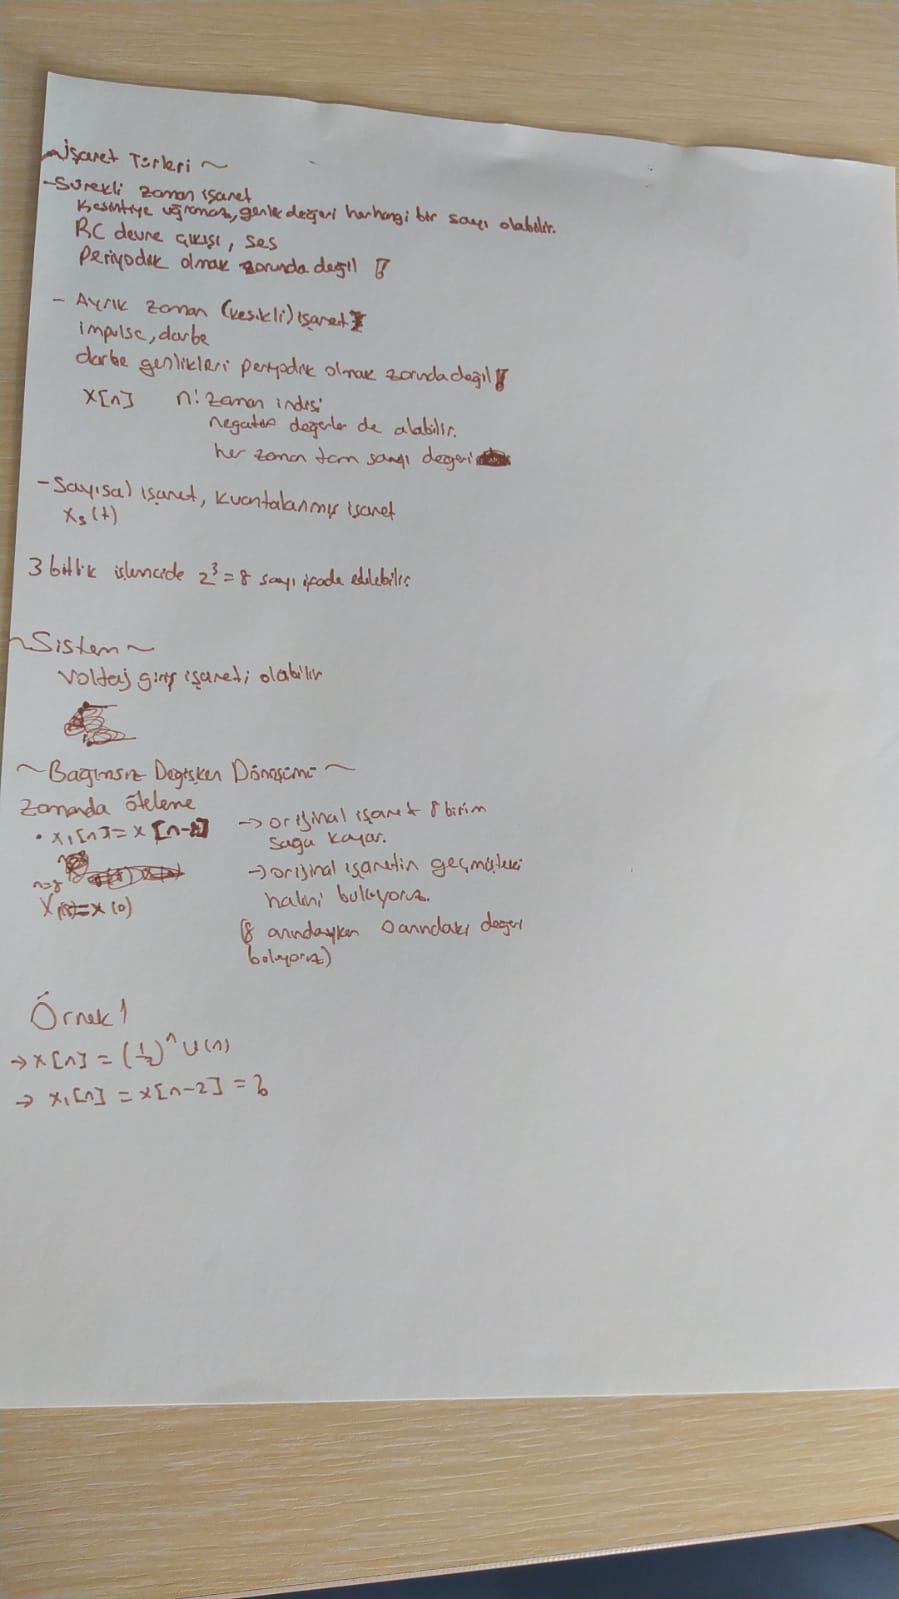 ~İşaret Türleri ~
-Sürekli zaman işaret
Kesintiye uğramaz, genlik değeri herhangi bir sayı olabilir.
RC devre çıkışı, ses
Periyodik olmak zorunda değil !
- Ayrık zaman (kesikli) işaret
impulse, darbe
darbe genlikleri periyodik olmak zorunda değil !
x[n] n: zaman indisi
negatif değerler de alabilir.
her zaman tam sayı değeri
- Sayısal işaret, kuantalanmış işaret
xₛ(t)
3 bitlik işlemcide 2³=8 sayı ifade edilebilir
~Sistem~
Voltaj giriş işareti olabilir
~Bağımsız Değişken Dönüşümü~
Zamanda öteleme
• x₁[n]=x[n-8] → orijinal işaret 8 birim
sağa kayar.
n=8 → orijinal işaretin geçmişteki
halini buluyoruz.
x₁(8)=x(0)
(8 anındayken 0 anındaki değeri
buluyoruz)
Örnek 1
→ x[n] = (1/2)ⁿ u(n)
→ x₁[n] = x[n-2] = ?